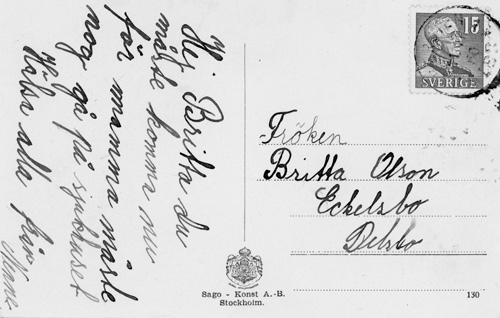 Hej Britta du
måste komma nu
för mamma måste
nog gå på sjukhuset
Hälsa alla från
15
SVERIGE
Fröken
Britta Olson
Eckelsbo
Delsbo
Sago - Konst A.-B.
Stockholm.
130